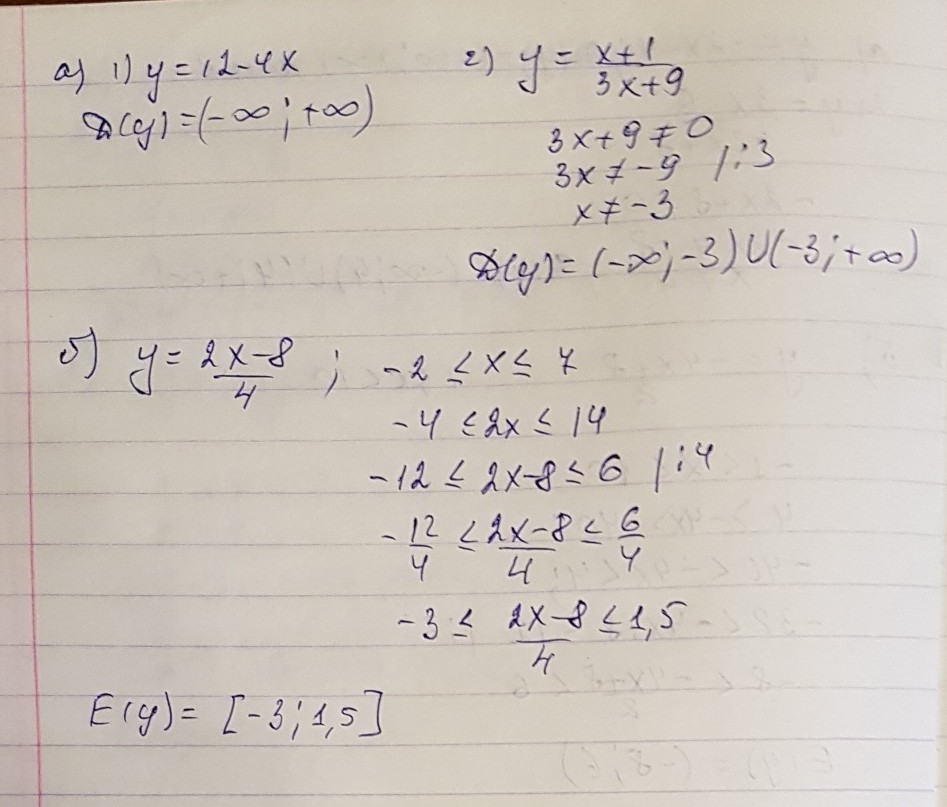 а) 1) y = 12-4x
D(y) = (-∞; +∞)
2) y = \frac{x+1}{3x+9}
3x+9 ≠ 0
3x ≠ -9 | :3
x ≠ -3
D(y) = (-∞; -3) ∪ (-3; +∞)
б) y = \frac{2x-8}{4} ; -2 ≤ x ≤ 7
-4 ≤ 2x ≤ 14
-12 ≤ 2x-8 ≤ 6 | :4
-\frac{12}{4} ≤ \frac{2x-8}{4} ≤ \frac{6}{4}
-3 ≤ \frac{2x-8}{4} ≤ 1,5
E(y) = [-3; 1,5]